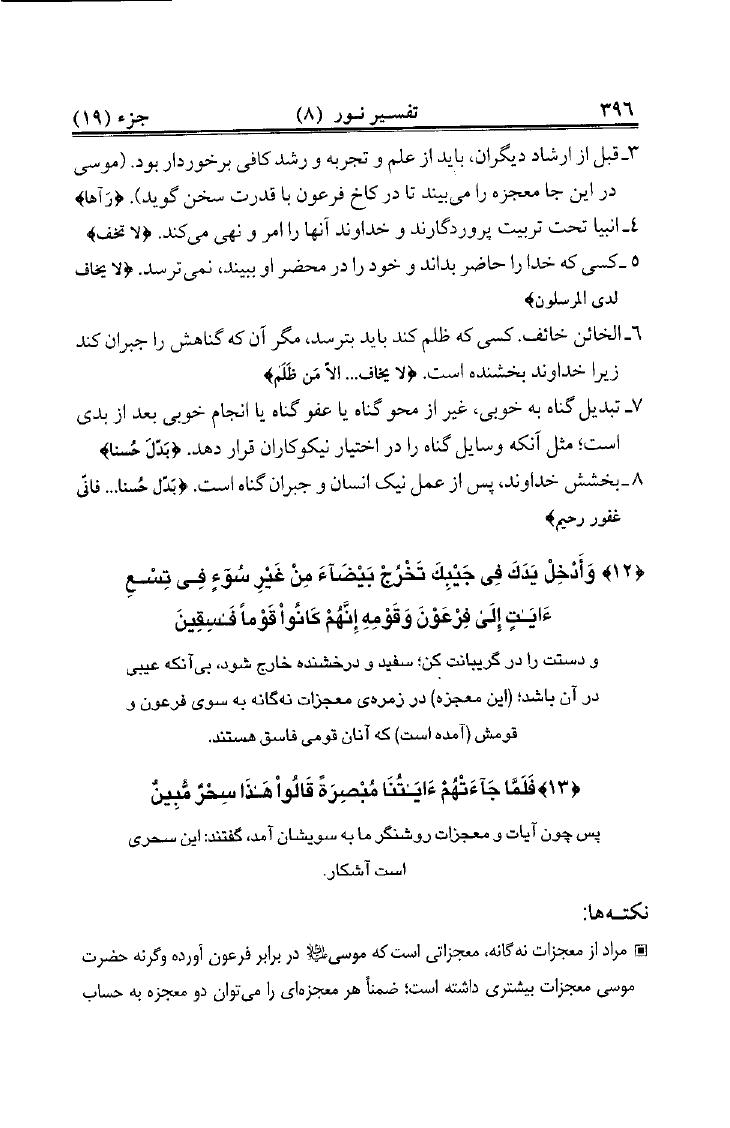 ۳۹۶ تفسیر نور (۸) جزء (۱۹)
۳ـ قبل از ارشاد دیگران، باید از علم و تجربه و رشد کافی برخوردار بود. (موسی
در این جا معجزه را می‌بیند تا در کاخ فرعون با قدرت سخن گوید). ﴿رَآها﴾
٤ـ انبیا تحت تربیت پروردگارند و خداوند آنها را امر و نهی می‌کند. ﴿لا تخف﴾
٥ ـ کسی که خدا را حاضر بداند و خود را در محضر او ببیند، نمی‌ترسد. ﴿لا یخاف
لدی المرسلون﴾
٦ـ الخائن خائف. کسی که ظلم کند باید بترسد، مگر آن که گناهش را جبران کند
زیرا خداوند بخشنده است. ﴿لا یخاف... الاّ مَن ظَلَم﴾
۷ـ تبدیل گناه به خوبی، غیر از محو گناه یا عفو گناه یا انجام خوبی بعد از بدی
است؛ مثل آنکه وسایل گناه را در اختیار نیکوکاران قرار دهد. ﴿بَدّلَ حُسنا﴾
۸ ـ بخشش خداوند، پس از عمل نیک انسان و جبران گناه است. ﴿بَدّل حُسنا... فانّی
غفور رحیم﴾
﴿۱۲﴾ وَأَدْخِلْ يَدَكَ فِى جَيْبِكَ تَخْرُجْ بَيْضَآءَ مِنْ غَيْرِ سُوٓءٍ فِى تِسْعِ
ءَايَـٰتٍ إِلَىٰ فِرْعَوْنَ وَقَوْمِهِ إِنَّهُمْ كَانُواْ قَوْماً فَـٰسِقِينَ
و دستت را در گریبانت کن؛ سفید و درخشنده خارج شود، بی‌آنکه عیبی
در آن باشد؛ (این معجزه) در زمره‌ی معجزات نه‌گانه به سوی فرعون و
قومش (آمده است) که آنان قومی فاسق هستند.
﴿۱۳﴾ فَلَمَّا جَآءَتْهُمْ ءَايَـٰتُنَا مُبْصِرَةً قَالُواْ هَـٰذَا سِحْرٌ مُّبِينٌ
پس چون آیات و معجزات روشنگر ما به سویشان آمد، گفتند: این سحری
است آشکار.
نکته‌ها:
▣ مراد از معجزات نه‌گانه، معجزاتی است که موسی در برابر فرعون آورده وگرنه حضرت
موسی معجزات بیشتری داشته است؛ ضمناً هر معجزه‌ای را می‌توان دو معجزه به حساب